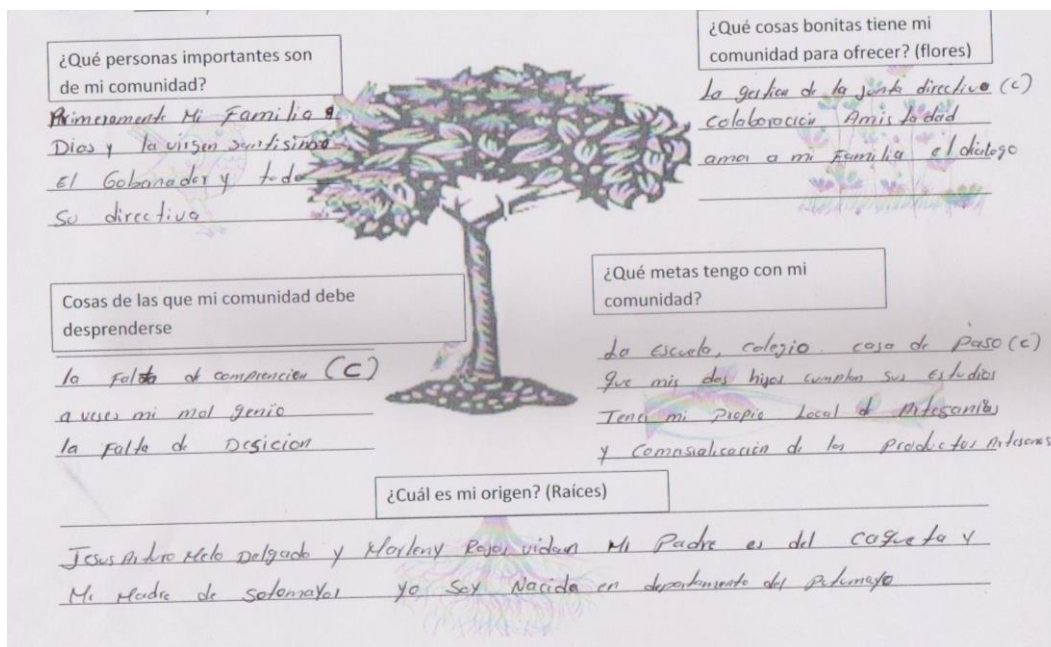 ¿Qué personas importantes son
de mi comunidad?
Primeramente Mi Familia
Dios y la virgen santisima
El Gobanador y toda
Su directiva
¿Qué cosas bonitas tiene mi
comunidad para ofrecer? (flores)
La gestion de la junta directiva (c)
colaboración Amistadad
amor a mi Familia el dialogo
Cosas de las que mi comunidad debe
desprenderse
la falta de comprencion (C)
a veses mi mal genio
la falta de Desicion
¿Qué metas tengo con mi
comunidad?
La escuela, colegio. casa de Paso (c)
que mis dos hijos cumplan sus estudios
Tener mi Propio Local d Artesanias
y de los Productos Artesanos
¿Cuál es mi origen? (Raíces)
Jesus Melo Delgado y Marleny Rojas Mi Padre es del Caqueta y
Mi Madre de Sotomayor yo Soy Nacida en departamento del Putumayo